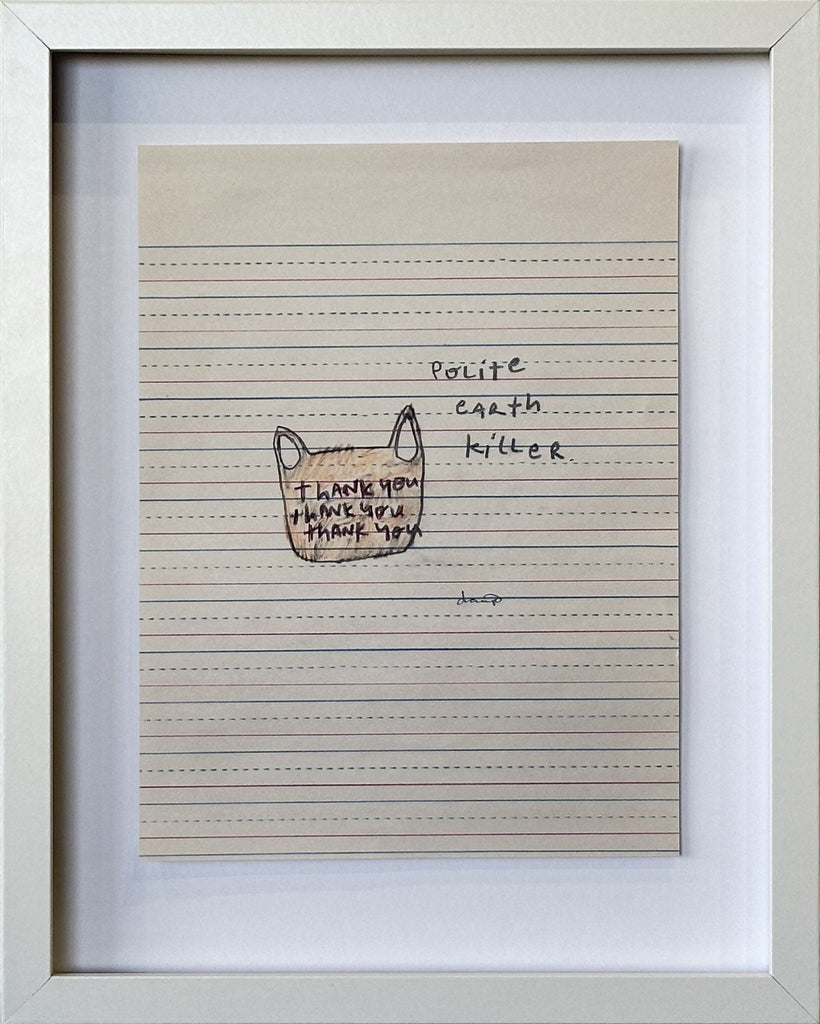 Polite
earth
killer.
thANK you
thANK you
thANK you